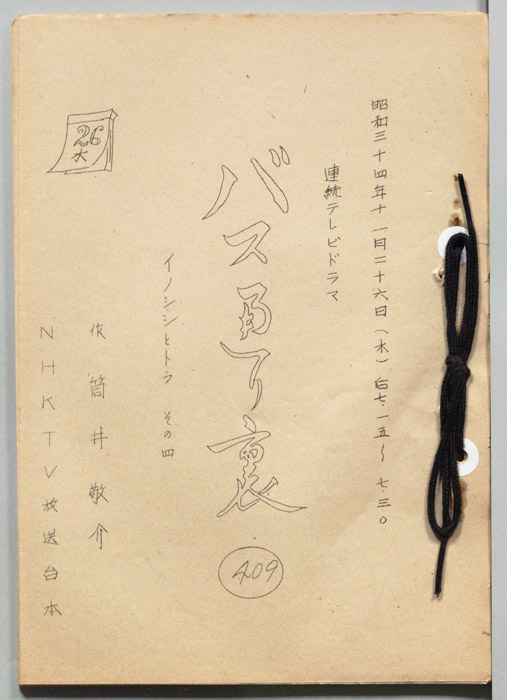 昭和三十四年十一月二十六日（木）后七・一五〜七・三〇
連続テレビドラマ
バス通り裏
409
イノシシとトラ その四
26
木
作 筒井敬介
NHKTV放送台本